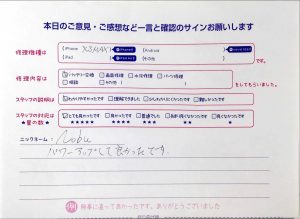 本日のご意見・ご感想など一言と確認のサインお願いします
修理機種は
iPhone XSMAX
Android
iPad
その他
です。
修理内容は
バッテリー交換 画面修理 水没修理 パーツ修理
相談 その他
をしてもらいました。
スタッフの説明は
わかりやすかったです 理解できました 少しわかりにくかったです 難しかったです
スタッフの対応は
★星の数★
とても良かったです 良かったです 普通でした
★★★★★ ★★★★ ★★★ ★★ ★
ニックネーム: Nobu
パワーアップして良かったです。
修理に違って良かったです。ありがとうございました